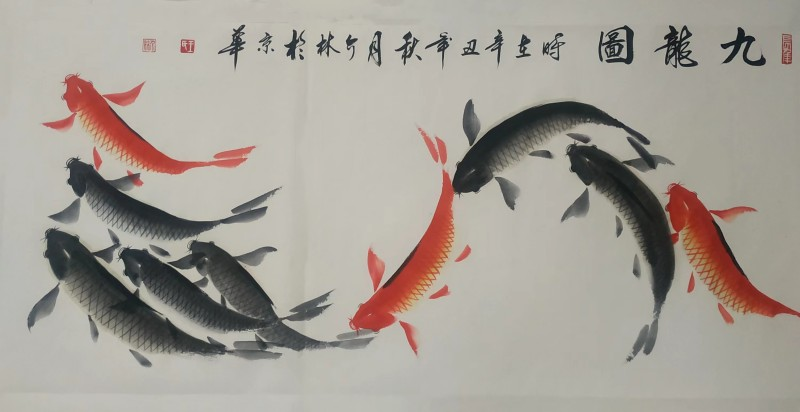 九龍圖
時在辛丑年秋月个林於京華